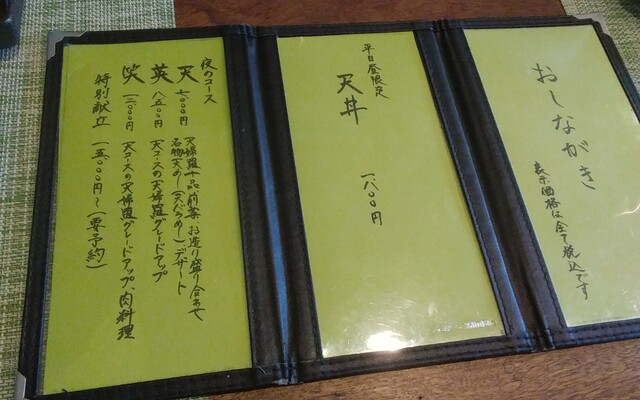 おしながき
表示価格は全て税込です
平日昼限定
天丼
一八〇〇円
夜のコース
天 七〇〇〇円 天婦羅十品 前菜 お造り盛り合わせ
名物天めし(天バラめし)、デザート
英 八五〇〇円 天コースの天婦羅グレードアップ
笑 一二〇〇〇円 天コースの天婦羅グレードアップ、肉料理
特別献立 一五〇〇〇円〜(要予約)